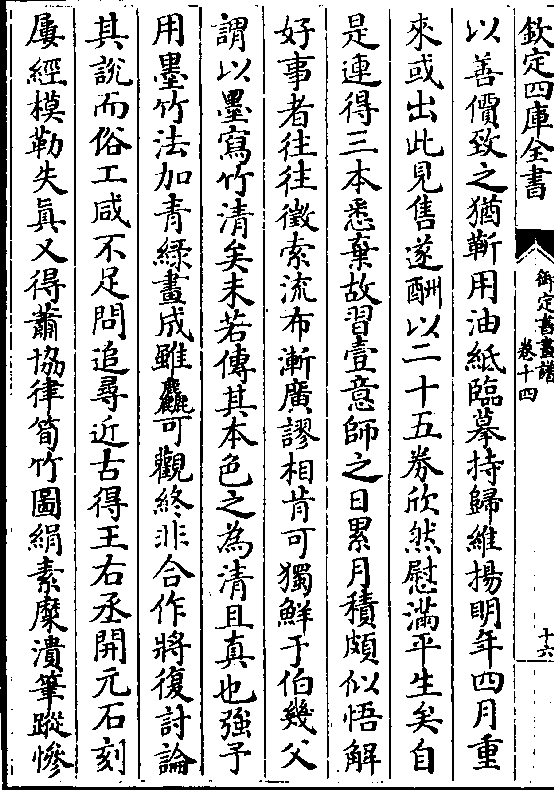 欽定四庫全書
御定書畫譜
卷十四
十六
以善價致之猶靳用油紙臨摹持歸維揚明年四月重
來或出此見售遂酬以二十五券欣然慰滿平生矣自
是連得三本悉棄故習壹意師之日累月積頗似悟解
好事者往往徵索流布漸廣謬相肯可獨鮮于伯幾父
謂以墨寫竹清矣未若傳其本色之為清且真也強予
用墨竹法加青綠畫成雖麤可觀終非合作將復討論
其說而俗工咸不足問追尋近古得王右丞開元石刻
屢經模勒失眞又得蕭協律筍竹圖絹素糜潰筆蹤慘